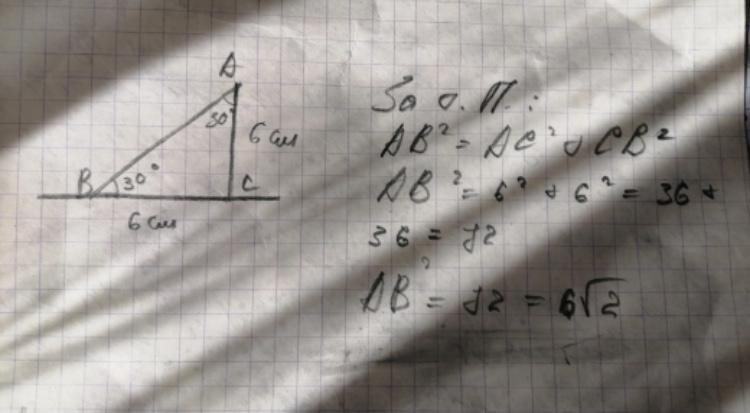 A
30°
6 см
B 30° C
6 см
За т. П.:
AB² = AC² + CB²
AB² = 6² + 6² = 36 +
36 = 72
AB² = 72 = 6√2